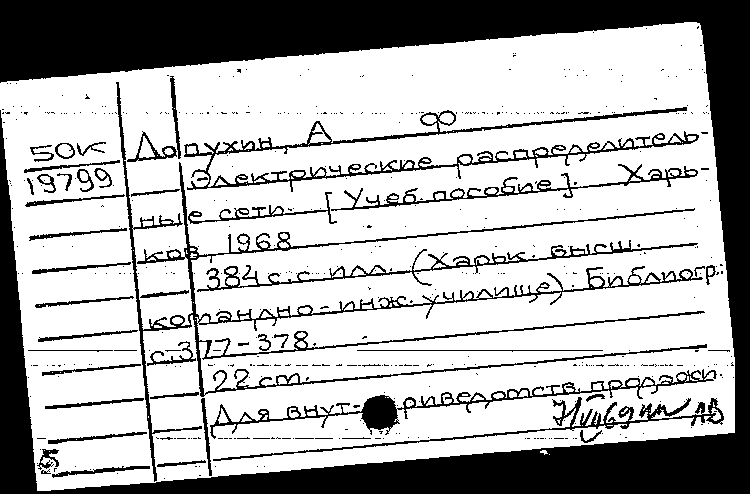 ф
50К Лопухин, А
19799 Электрические распределитель-
ные сети. [Учеб. пособие]. Харь-
ков, 1968
384 с. с илл. (Харьк. высш.
командно-инж. училище). Библиогр.:
с. 377-378.
22 см.
Для внут-риведомств. продажи.
АВ